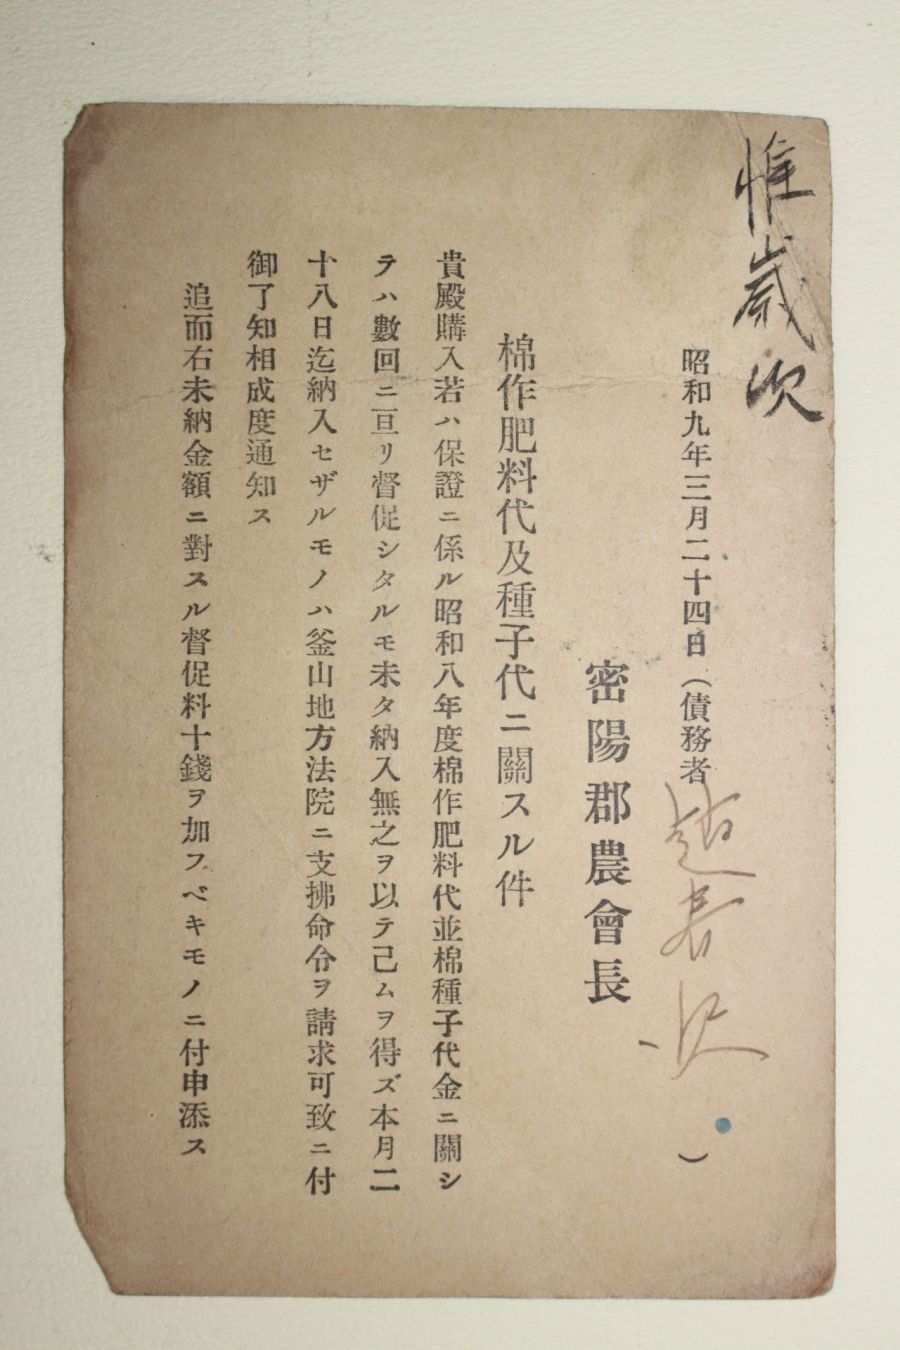 惟歲次
昭和九年三月二十四日（債務者 趙 ）
密陽郡農會長
棉作肥料代及種子代ニ關スル件
貴殿購入若ハ保證ニ係ル昭和八年度棉作肥料代並棉種子代金ニ關シ
テハ數回ニ亘リ督促シタルモ未タ納入無之ヲ以テ己ムヲ得ズ本月二
十八日迄納入セザルモノハ釜山地方法院ニ支拂命令ヲ請求可致ニ付
御了知相成度通知ス
追而右未納金額ニ對スル督促料十錢ヲ加フベキモノニ付申添ス